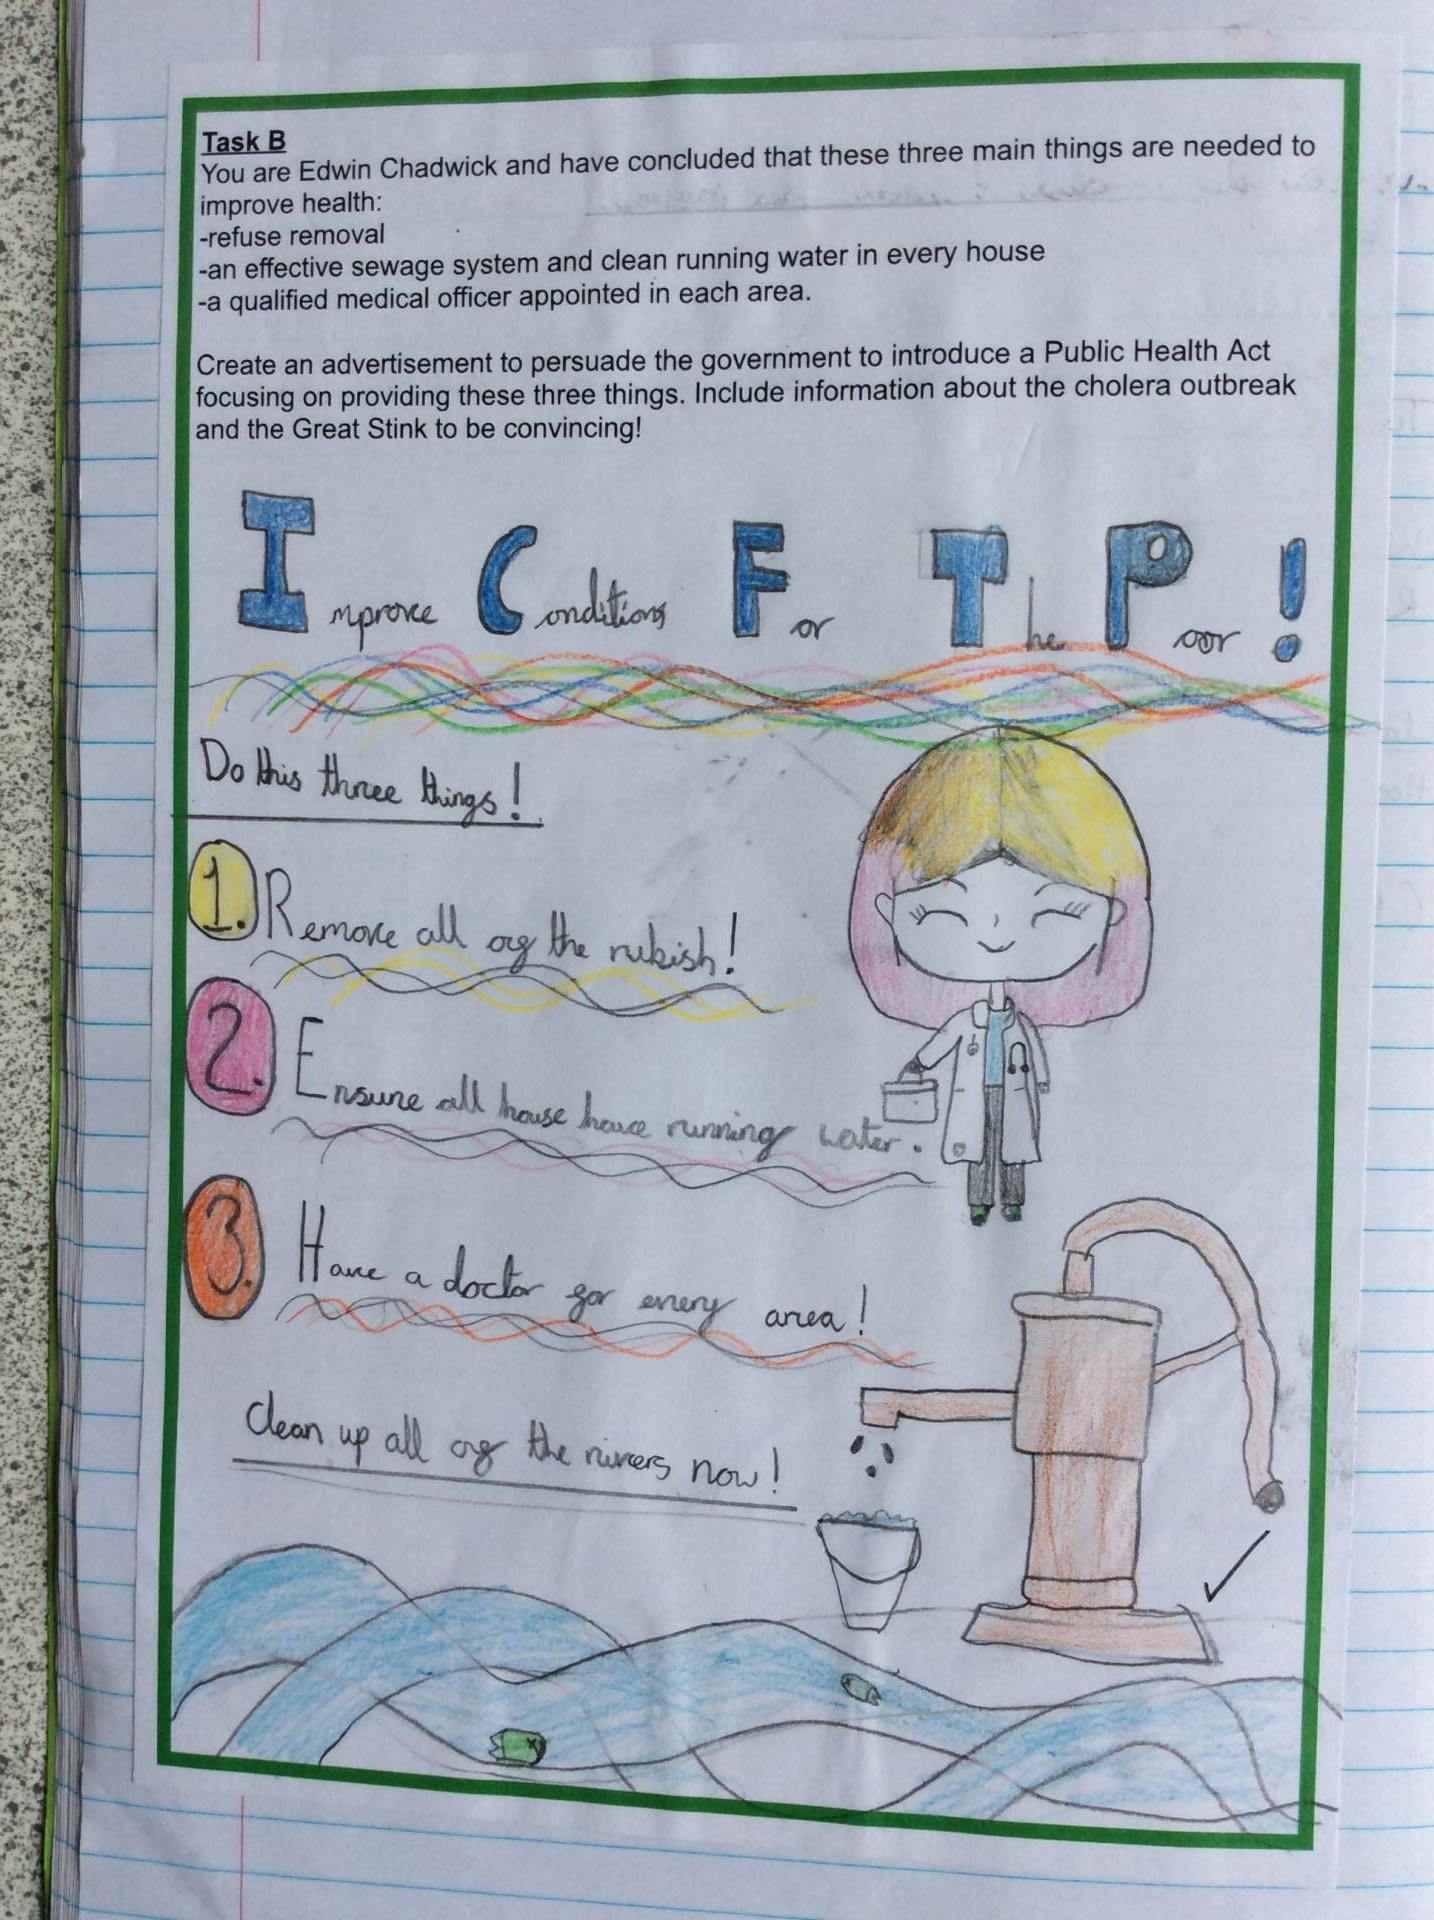 Task B
You are Edwin Chadwick and have concluded that these three main things are needed to
improve health:
-refuse removal
-an effective sewage system and clean running water in every house
-a qualified medical officer appointed in each area.
Create an advertisement to persuade the government to introduce a Public Health Act
focusing on providing these three things. Include information about the cholera outbreak
and the Great Stink to be convincing!
Improve Conditions For The Poor!
Do this three things!
1. Remove all of the rubish!
2. Ensure all house have running water.
3. Have a doctor for every area!
Clean up all of the rivers now!